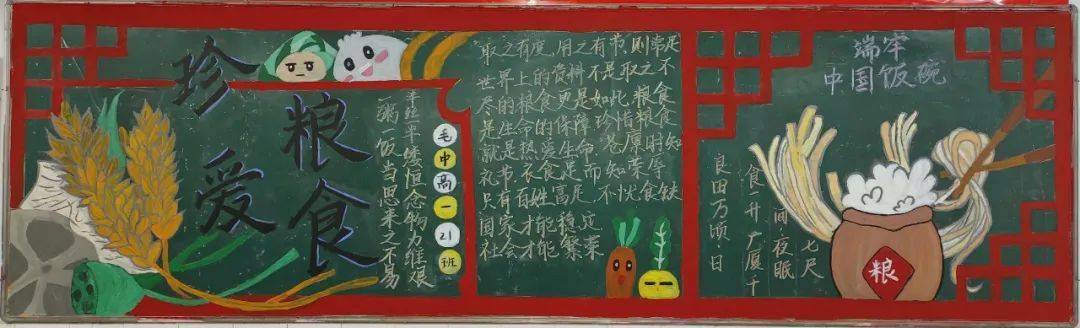 珍爱
粮食
半丝半缕恒念物力维艰
一粥一饭当思来之不易
毛中高一21班
取之有度,用之有节,则常足
世界上的资料不是取之不
尽的,粮食更是如此,粮食
是生命的保障,珍惜粮食
就是热爱生命,仓廪时知
礼节,衣食足而知荣辱
只有百姓富足,不忧食缺
国家才能稳定
社会才能繁荣
端牢
中国饭碗
良田万顷日
食升 广厦十
间夜眠
七尺
粮